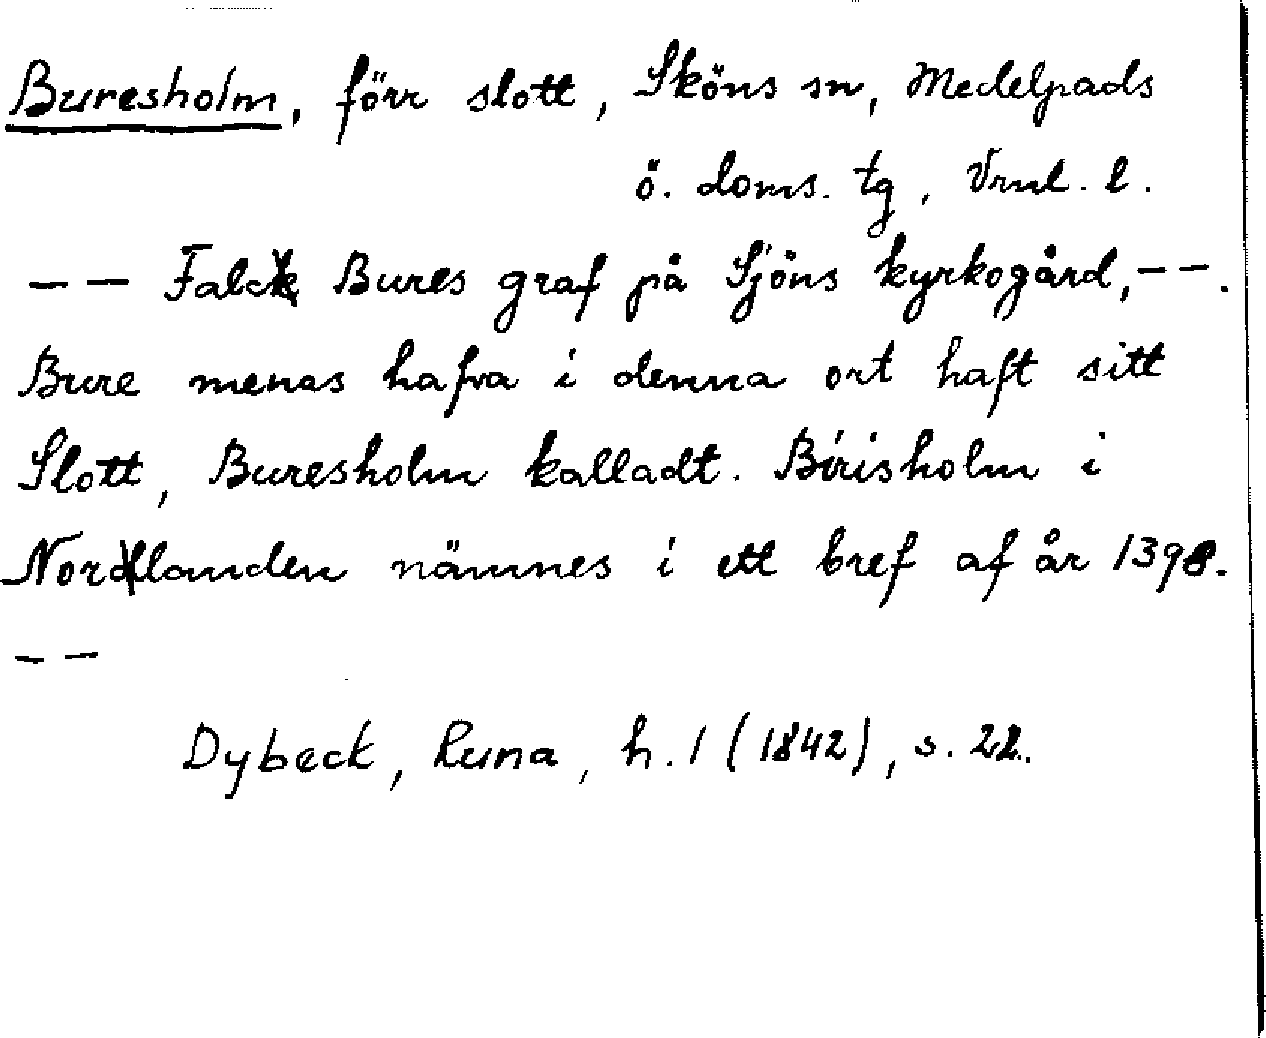 Buresholm, förr slott, Sköns sn, Medelpads
ö. doms. tg, Vrnl. l.
-- Falck Bures graf på Sjöns kyrkogård, --.
Bure menas hafva i denna ort haft sitt
Slott, Buresholm kalladt. Birisholm i
Nordlanden nämnes i ett bref af år 1398.
--
Dybeck, Runa, h. 1 (1842), s. 22.